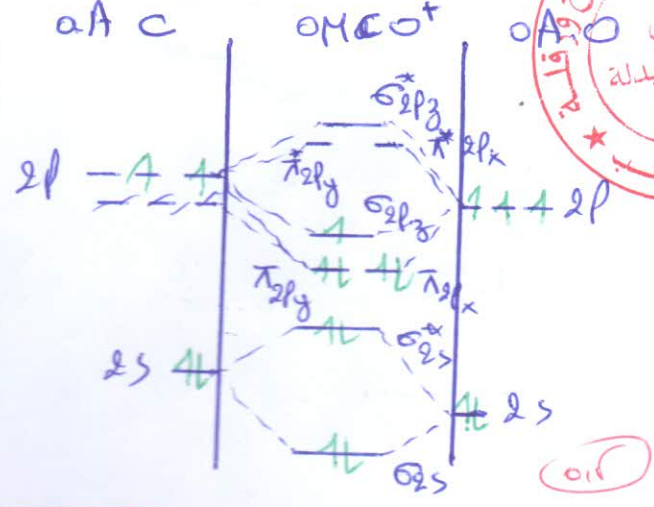 OA C OM CO⁺ OA O
σ*2pz
π*2py π*2px
2p 2p
σ2pz
π2py π2px
σ*2s
2s 2s
σ2s
0,5